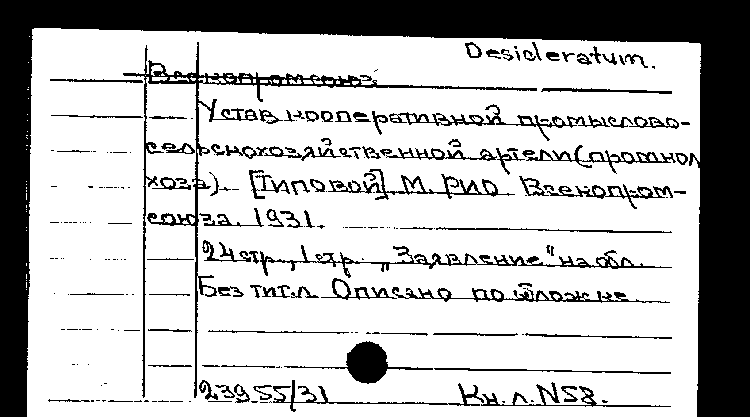 Desideratum.
Всекопромсоюз.
Устав кооперативной промыслово-
сельскохозяйственной артели (промкол
хоза). [Типовой] М. РИО Всекопром-
союза. 1931.
24 стр., 1 стр. „Заявление" на обл.
Без тит. л. Описано по обложке
23955/31 Кн. л. N58.